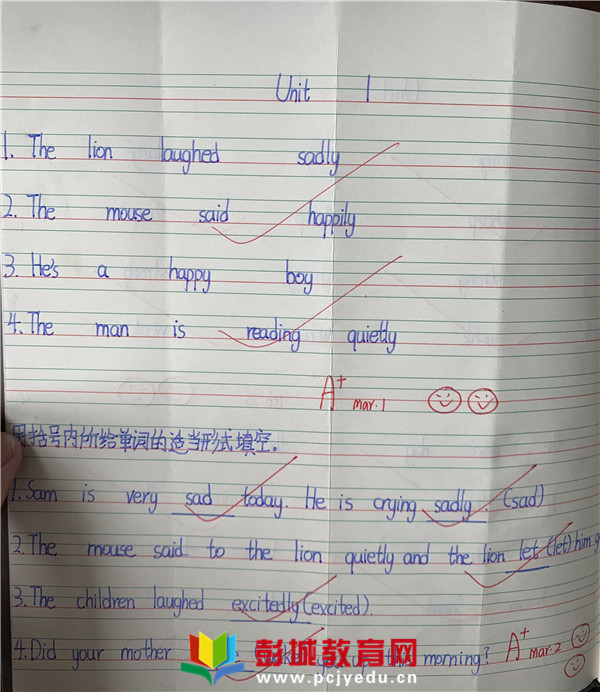 Unit 1
1. The lion laughed sadly
2. The mouse said happily
3. He's a happy boy
4. The man is reading quietly
A+ mar.1
用括号内所给单词的适当形式填空。
1. Sam is very sad today. He is crying sadly. (sad)
2. The mouse said to the lion quietly and the lion let (let) him
3. The children laughed excitedly (excited).
4. Did your mother up this morning?
A+ mar.2
彭城教育网
www.pcjyedu.cn